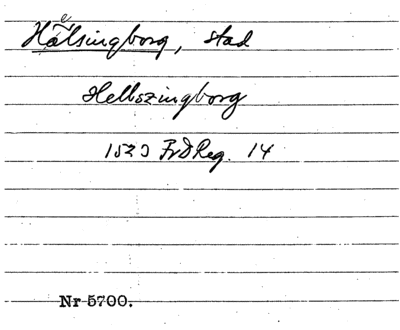 Hälsingborg, stad
e
Hellszingborg
1523 FrDReg. 14
Nr 5700.